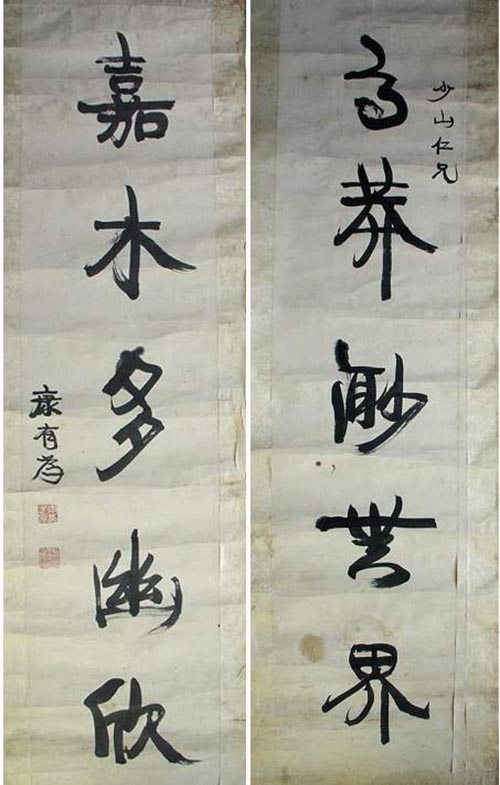 少山仁兄
高莽渺世界
嘉木多幽欣
康有为